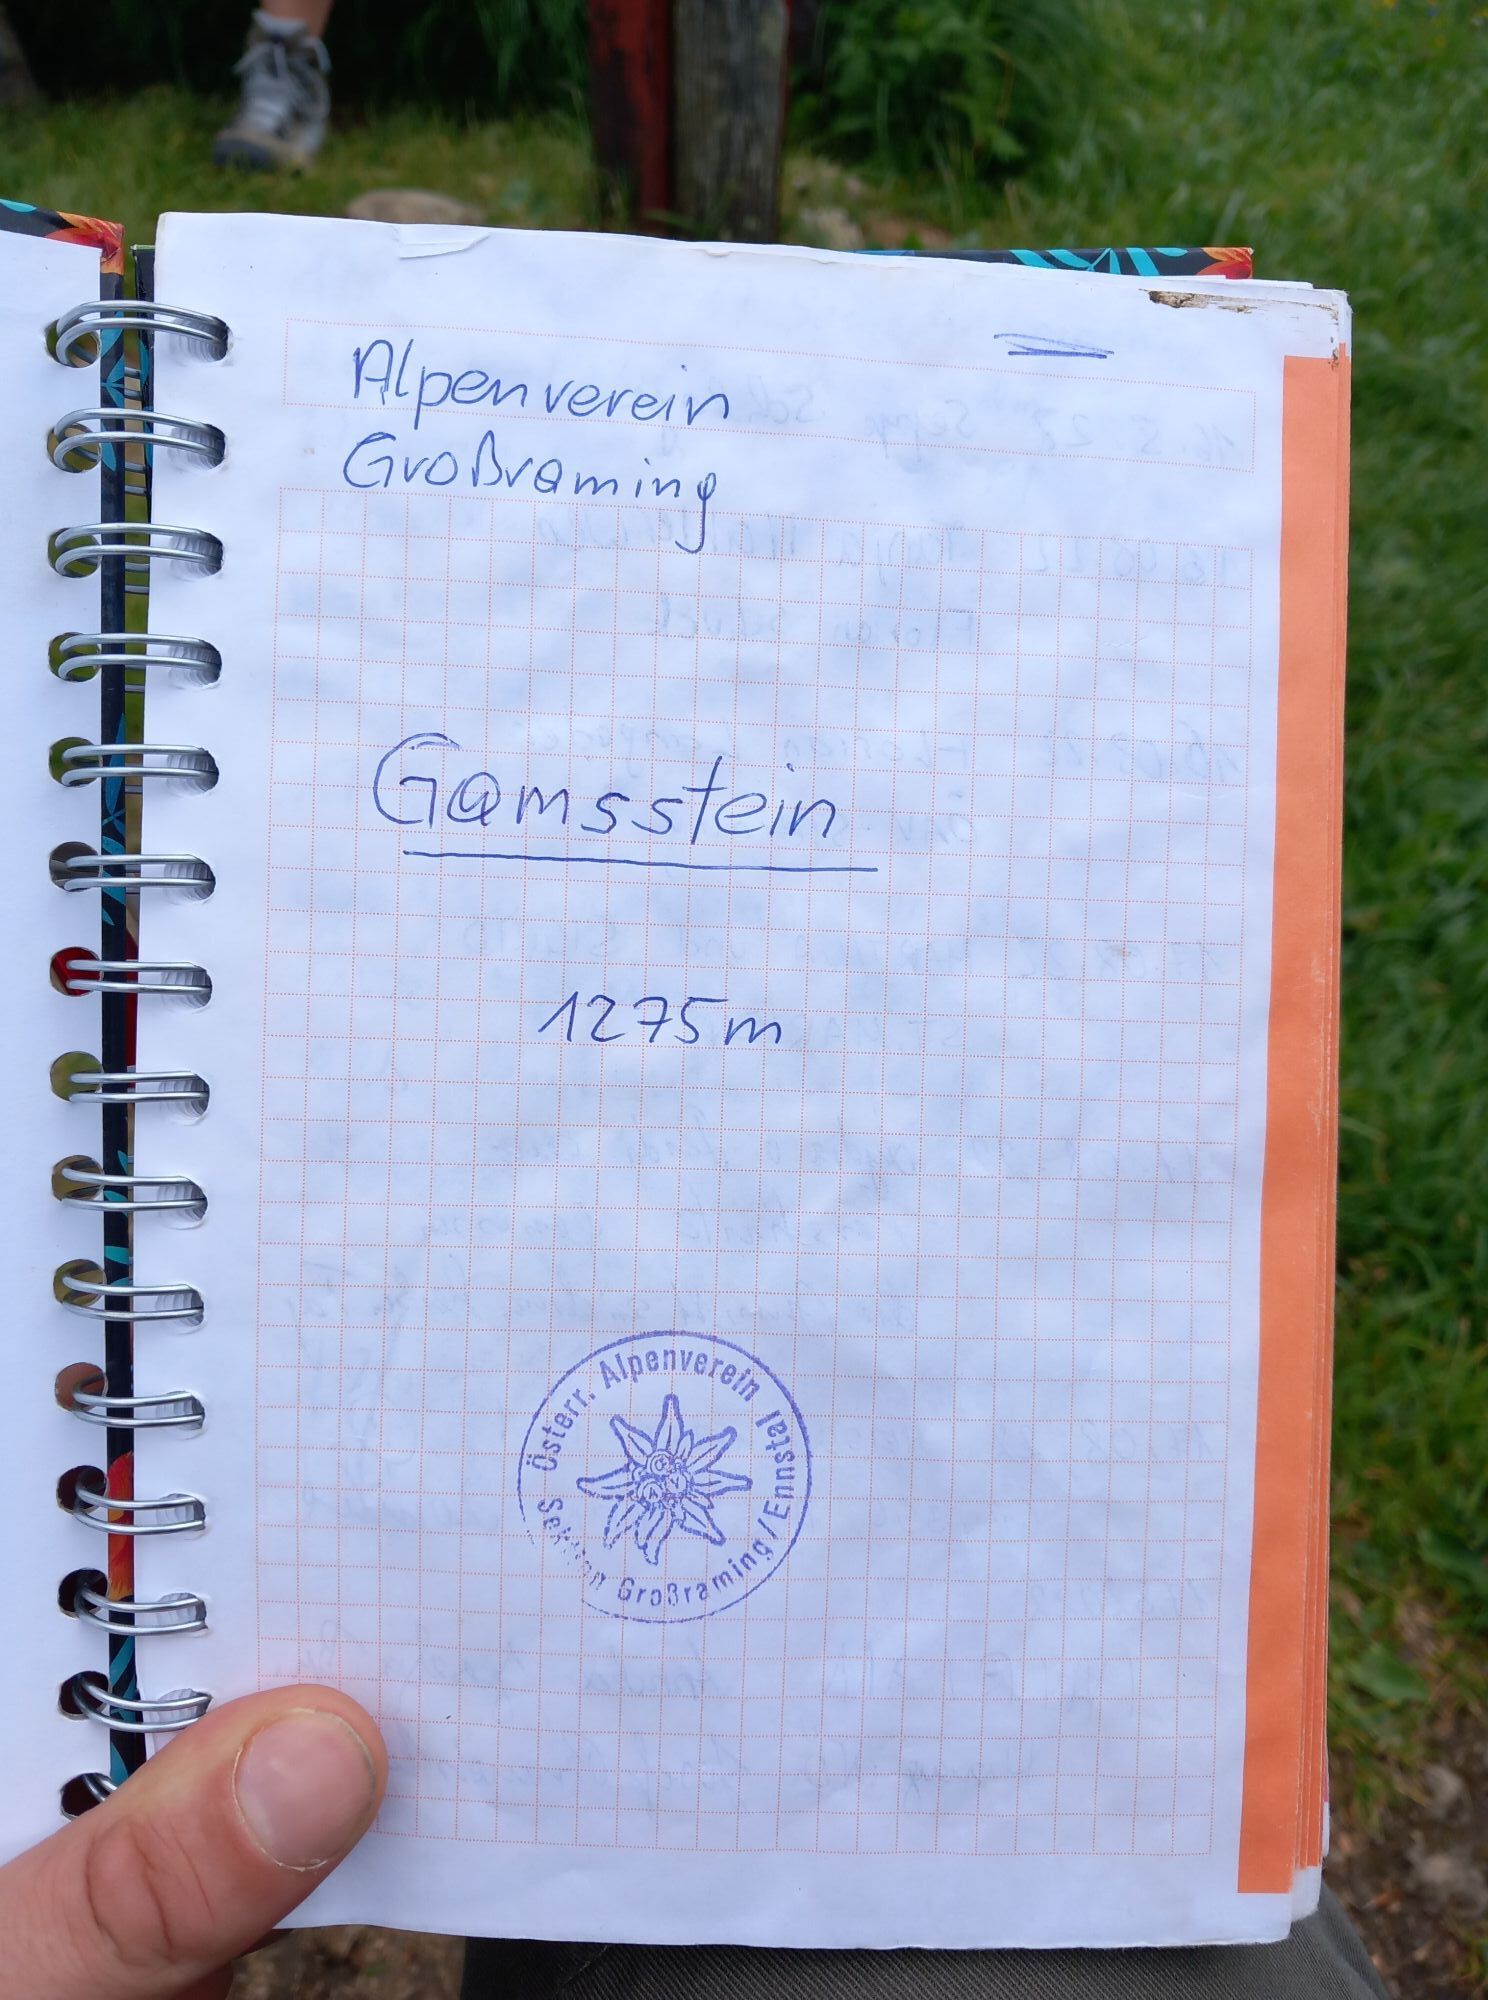 Alpenverein
Großraming
Gamsstein
1275m
Österr. Alpenverein
Sektion Großraming/Ennstal